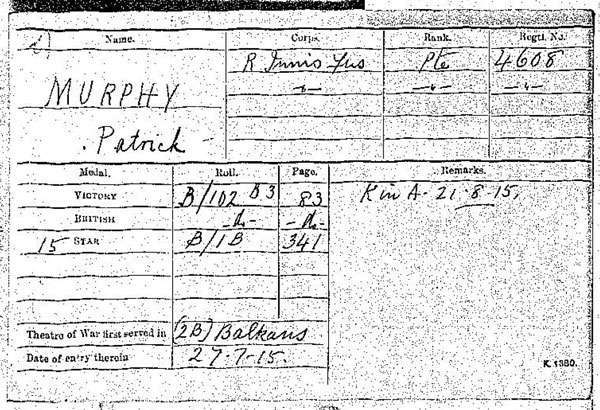 Name. Corps. Rank. Regtl. No.
MURPHY R Innis Fus Pte 4608
-"- -"- -"-
Patrick
Medal. Roll. Page. Remarks.
VICTORY B/102 B3 83 K in A. 21.8.15.
BRITISH -do- -do-
15 STAR B/1B 341
Theatre of War first served in (2B) Balkans
Date of entry therein 27.7.15.
K 1380.